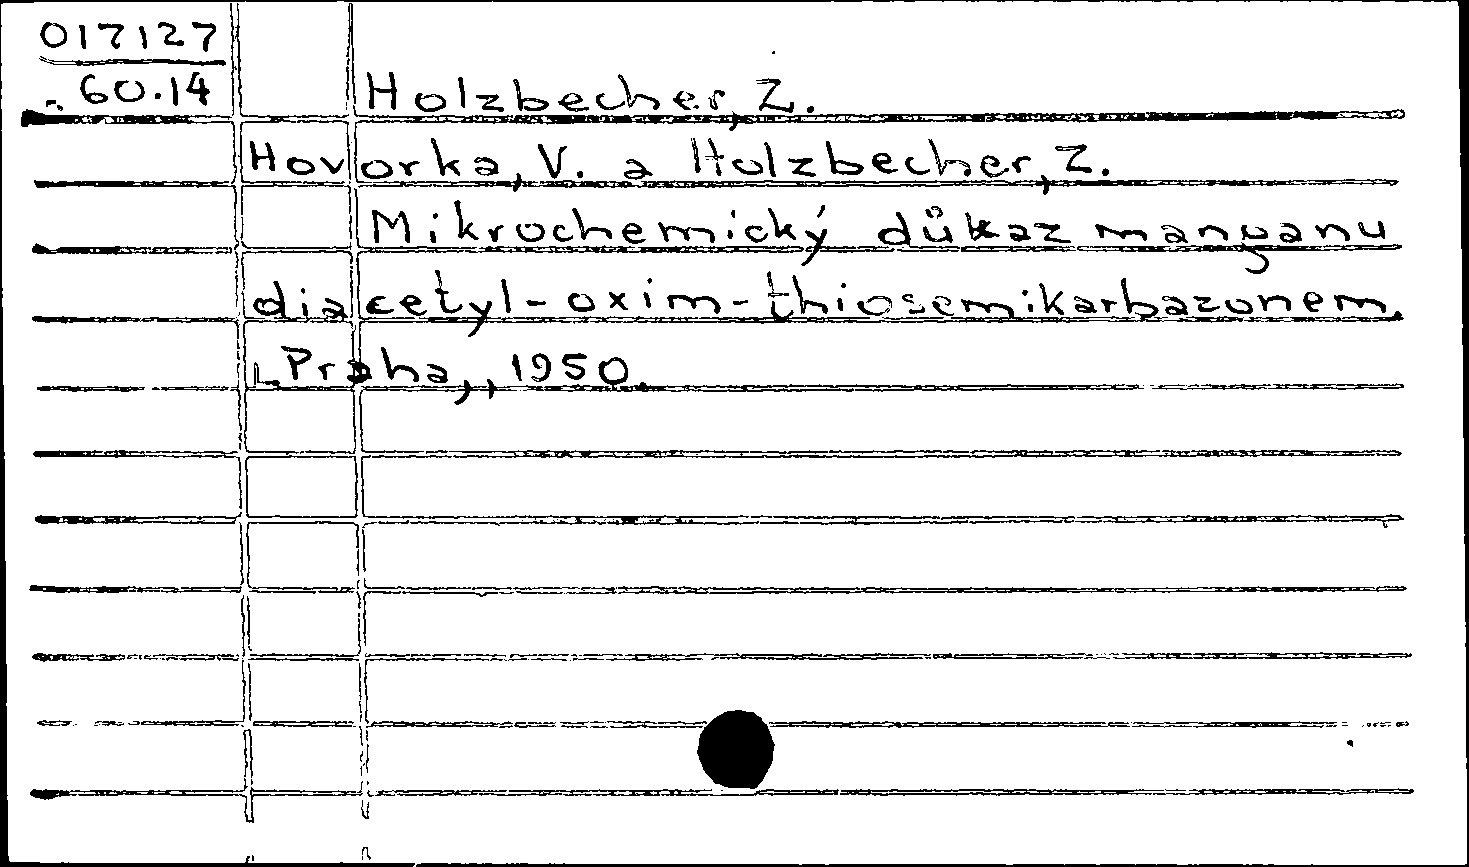 017127
60.14
Holzbecher, Z.
Hovorka, V. a Holzbecher, Z.
Mikrochemický důkaz manganu
diacetyl-oxim-thiosemikarbazonem.
Praha,, 1950.